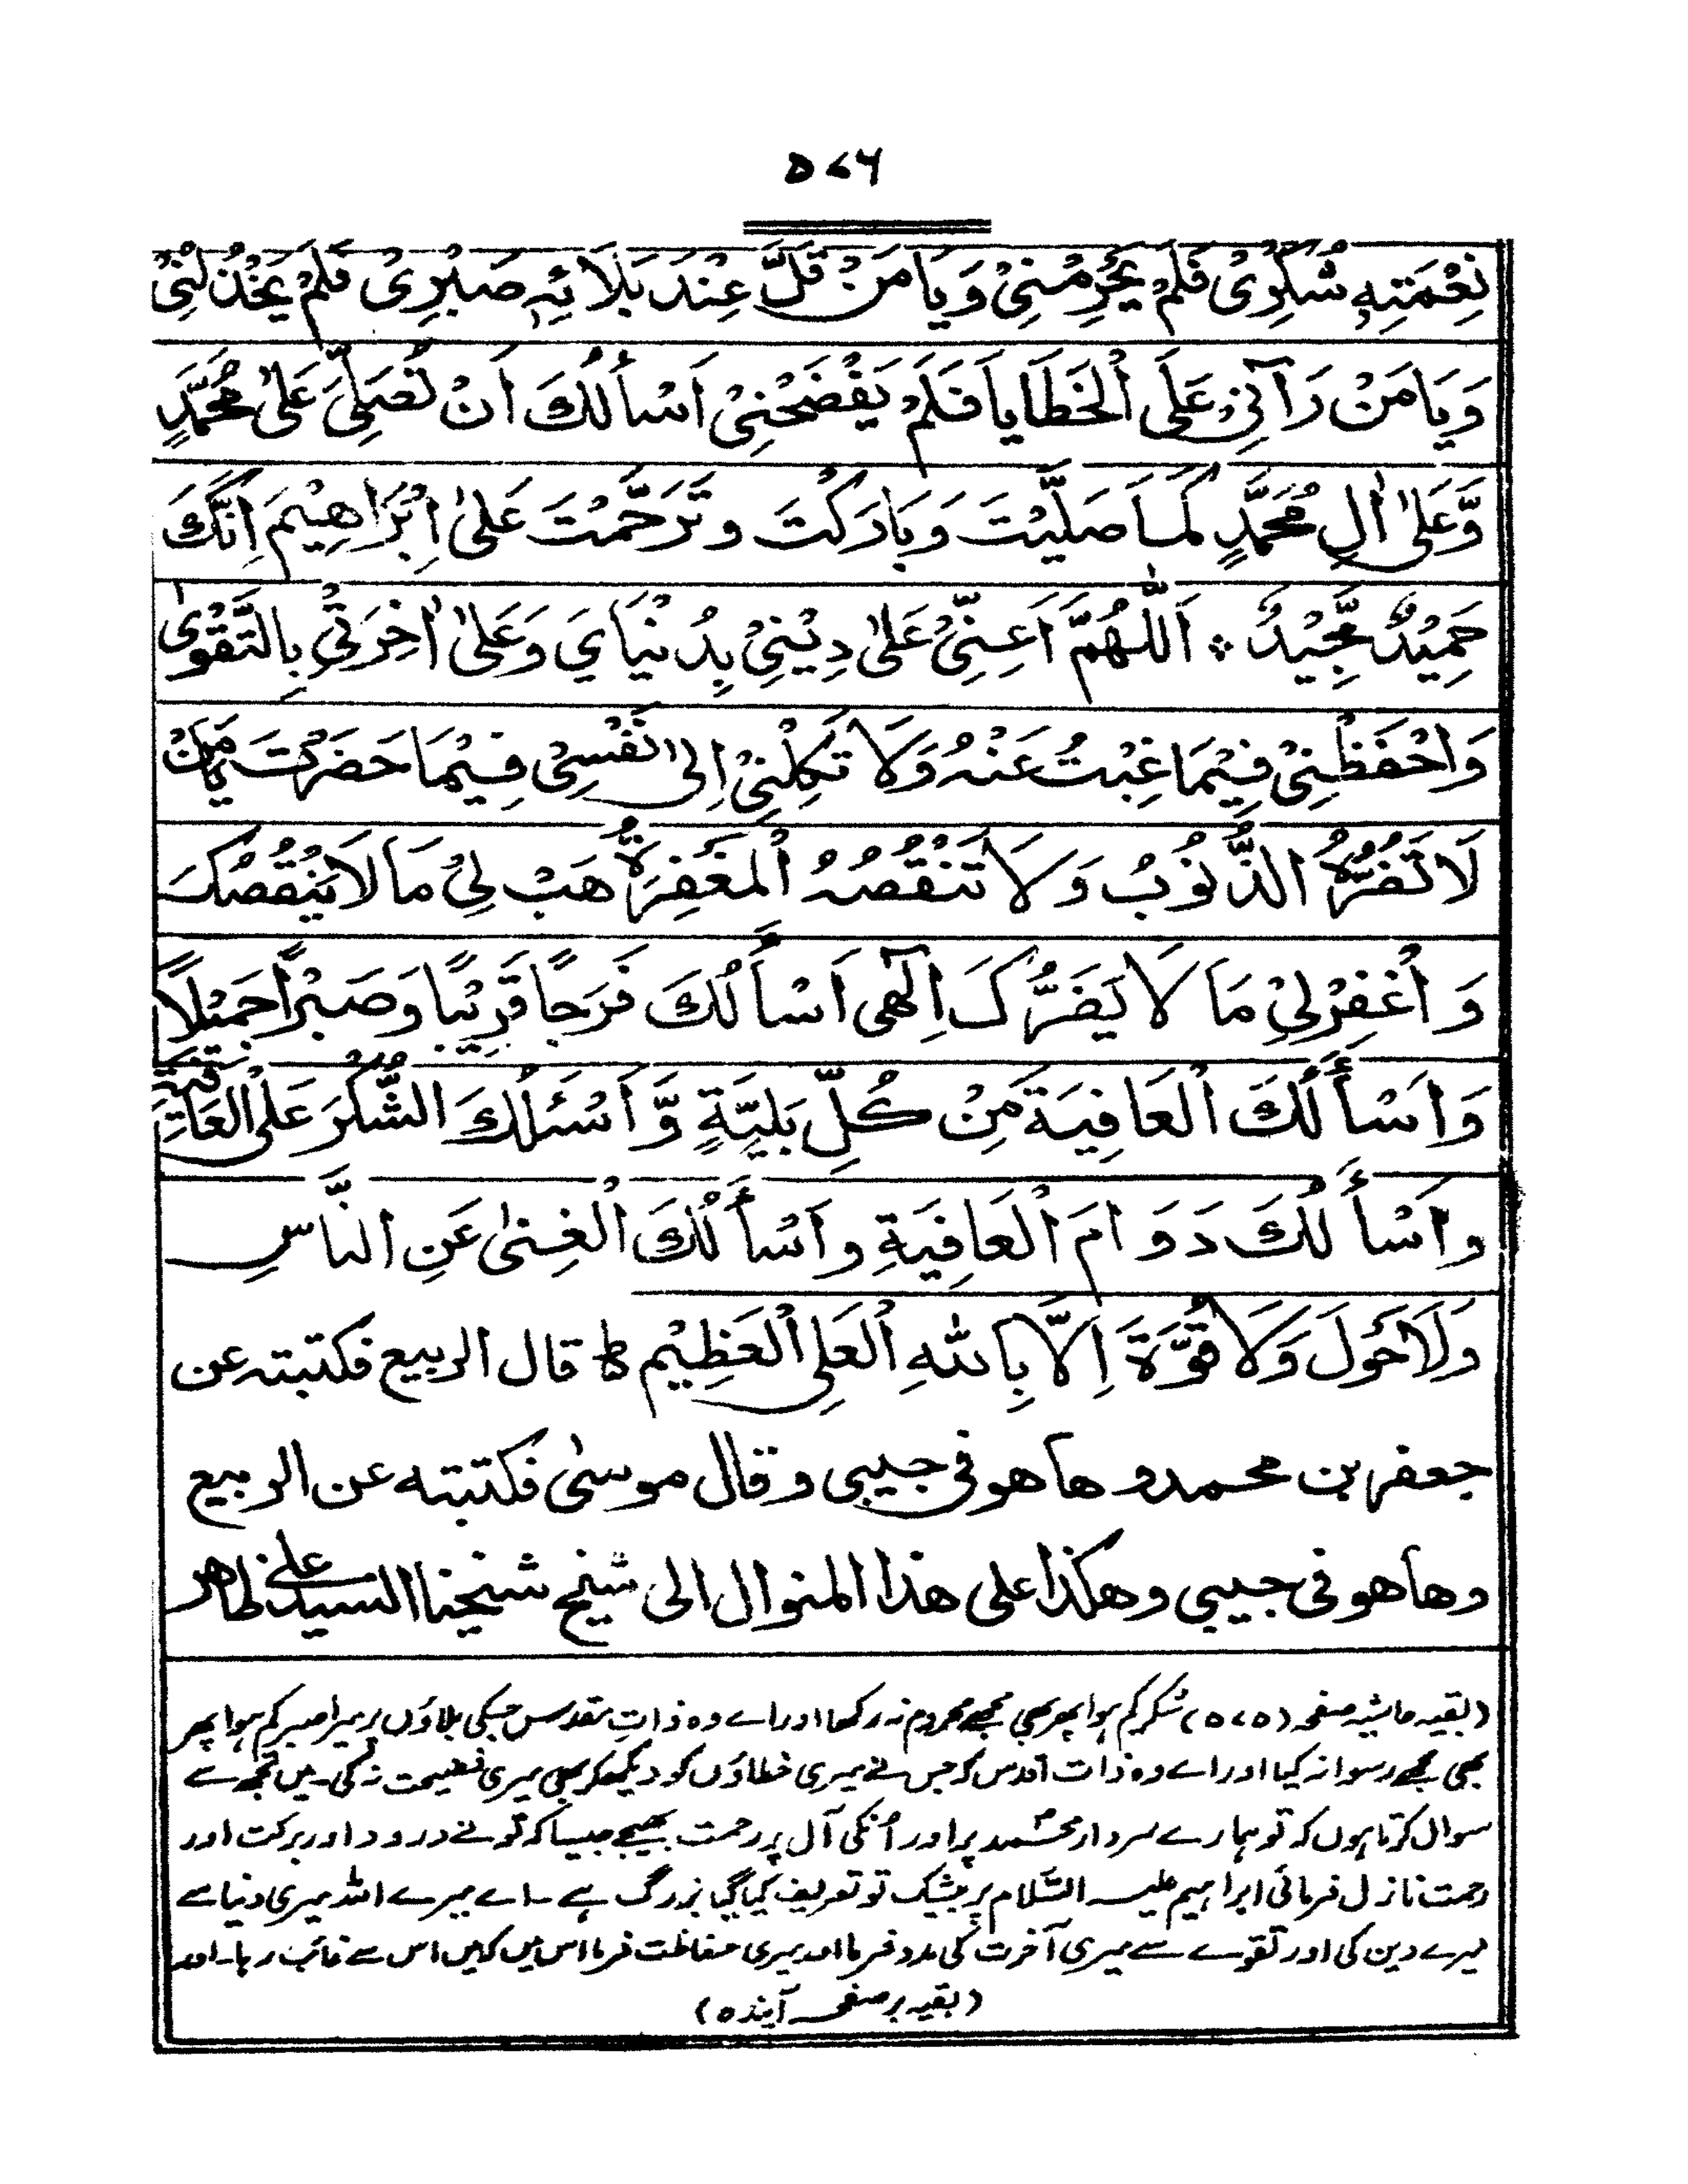 ۵۷۶
نِعْمَتِهٖ شُكْرِیْ فَلَمْ یَحْرِمْنِیْ وَیَا مَنْ قَلَّ عِنْدَ بَلَائِهٖ صَبْرِیْ فَلَمْ یَخْذُلْنِیْ
وَیَا مَنْ رَآنِیْ عَلَی الْخَطَایَا فَلَمْ یَفْضَحْنِیْ اَسْأَلُكَ اَنْ تُصَلِّیَ عَلٰی مُحَمَّدٍ
وَّعَلٰی اٰلِ مُحَمَّدٍ كَمَا صَلَّیْتَ وَبَارَكْتَ وتَرَحَّمْتَ عَلٰی اِبْرَاهِیْمَ اِنَّكَ
حَمِیْدٌ مَّجِیْدٌ ؞ اَللّٰهُمَّ اَعِنِّیْ عَلٰی دِیْنِیْ بِدُنْیَایَ وَعَلٰی اٰخِرَتِیْ بِالتَّقْوٰی
وَاحْفَظْنِیْ فِیْمَا غِبْتُ عَنْهُ وَلَا تَكِلْنِیْ اِلٰی نَفْسِیْ فِیْمَا حَضَرْتَ یَامَنْ
لَا تَضُرُّهُ الذُّنُوْبُ وَلَا تَنْقُصُهُ الْمَغْفِرَةُ هَبْ لِیْ مَا لَا یَنْقُصُكَ
وَ اغْفِرْلِیْ مَا لَا یَضُرُّكَ اِلٰهی اَسْأَلُكَ فَرَجًا قَرِیْبًا وَصَبْرًا جَمِیْلًا
وَاَسْأَلُكَ الْعَافِیَةَ مِنْ كُلِّ بَلِیَّةٍ وَّاَسْئَلُكَ الشُّكْرَ عَلٰی الْعَافِیَةِ
وَاَسْأَلُكَ دَوَامَ الْعَافِیَةِ واَسْأَلُكَ الْغِنٰی عَنِ النَّاسِ
وَلَا حَوْلَ وَلَا قُوَّةَ اِلَّا بِاللّٰهِ الْعَلِی الْعَظِیْمِ ط قال الربیع فكتبته عن
جعفر بن محمد وها هو فی جیبی وقال موسیٰ فكتبته عن الربیع
وها هو فی جیبی وهكذا علی هذا المنوال الی شیخ شیخنا السید علی ظاهر
(بقیہ حاشیہ صفحہ (۵۷۵) شکر کم ہوا پھر بھی مجھے محروم نہ رکھا اور اے وہ ذاتِ مقدس جسکی بلاؤں پر میرا صبر کم ہوا پھر
بھی مجھے رسوا نہ کیا اور اے وہ ذات اقدس کہ جس نے میری خطاؤں کو دیکھ کر بھی میری فضیحت نہ کی۔ میں تجھ سے
سوال کرتا ہوں کہ تو ہمارے سردار محمد پر اور اُنکی آل پر رحمت بھیجے جیسا کہ تو نے درود اور برکت اور
رحمت نازل فرمائی ابراہیم علیہ السّلام پر بیشک تو تعریف کیا گیا بزرگ ہے ۔ اے میرے اللہ میری دنیا سے
میرے دین کی اور تقوے سے میری آخرت کی مدد فرما اور میری حفاظت فرما اس میں کہ میں اس سے غائب رہا۔ اور
(بقیہ بر صفحہ آیندہ)